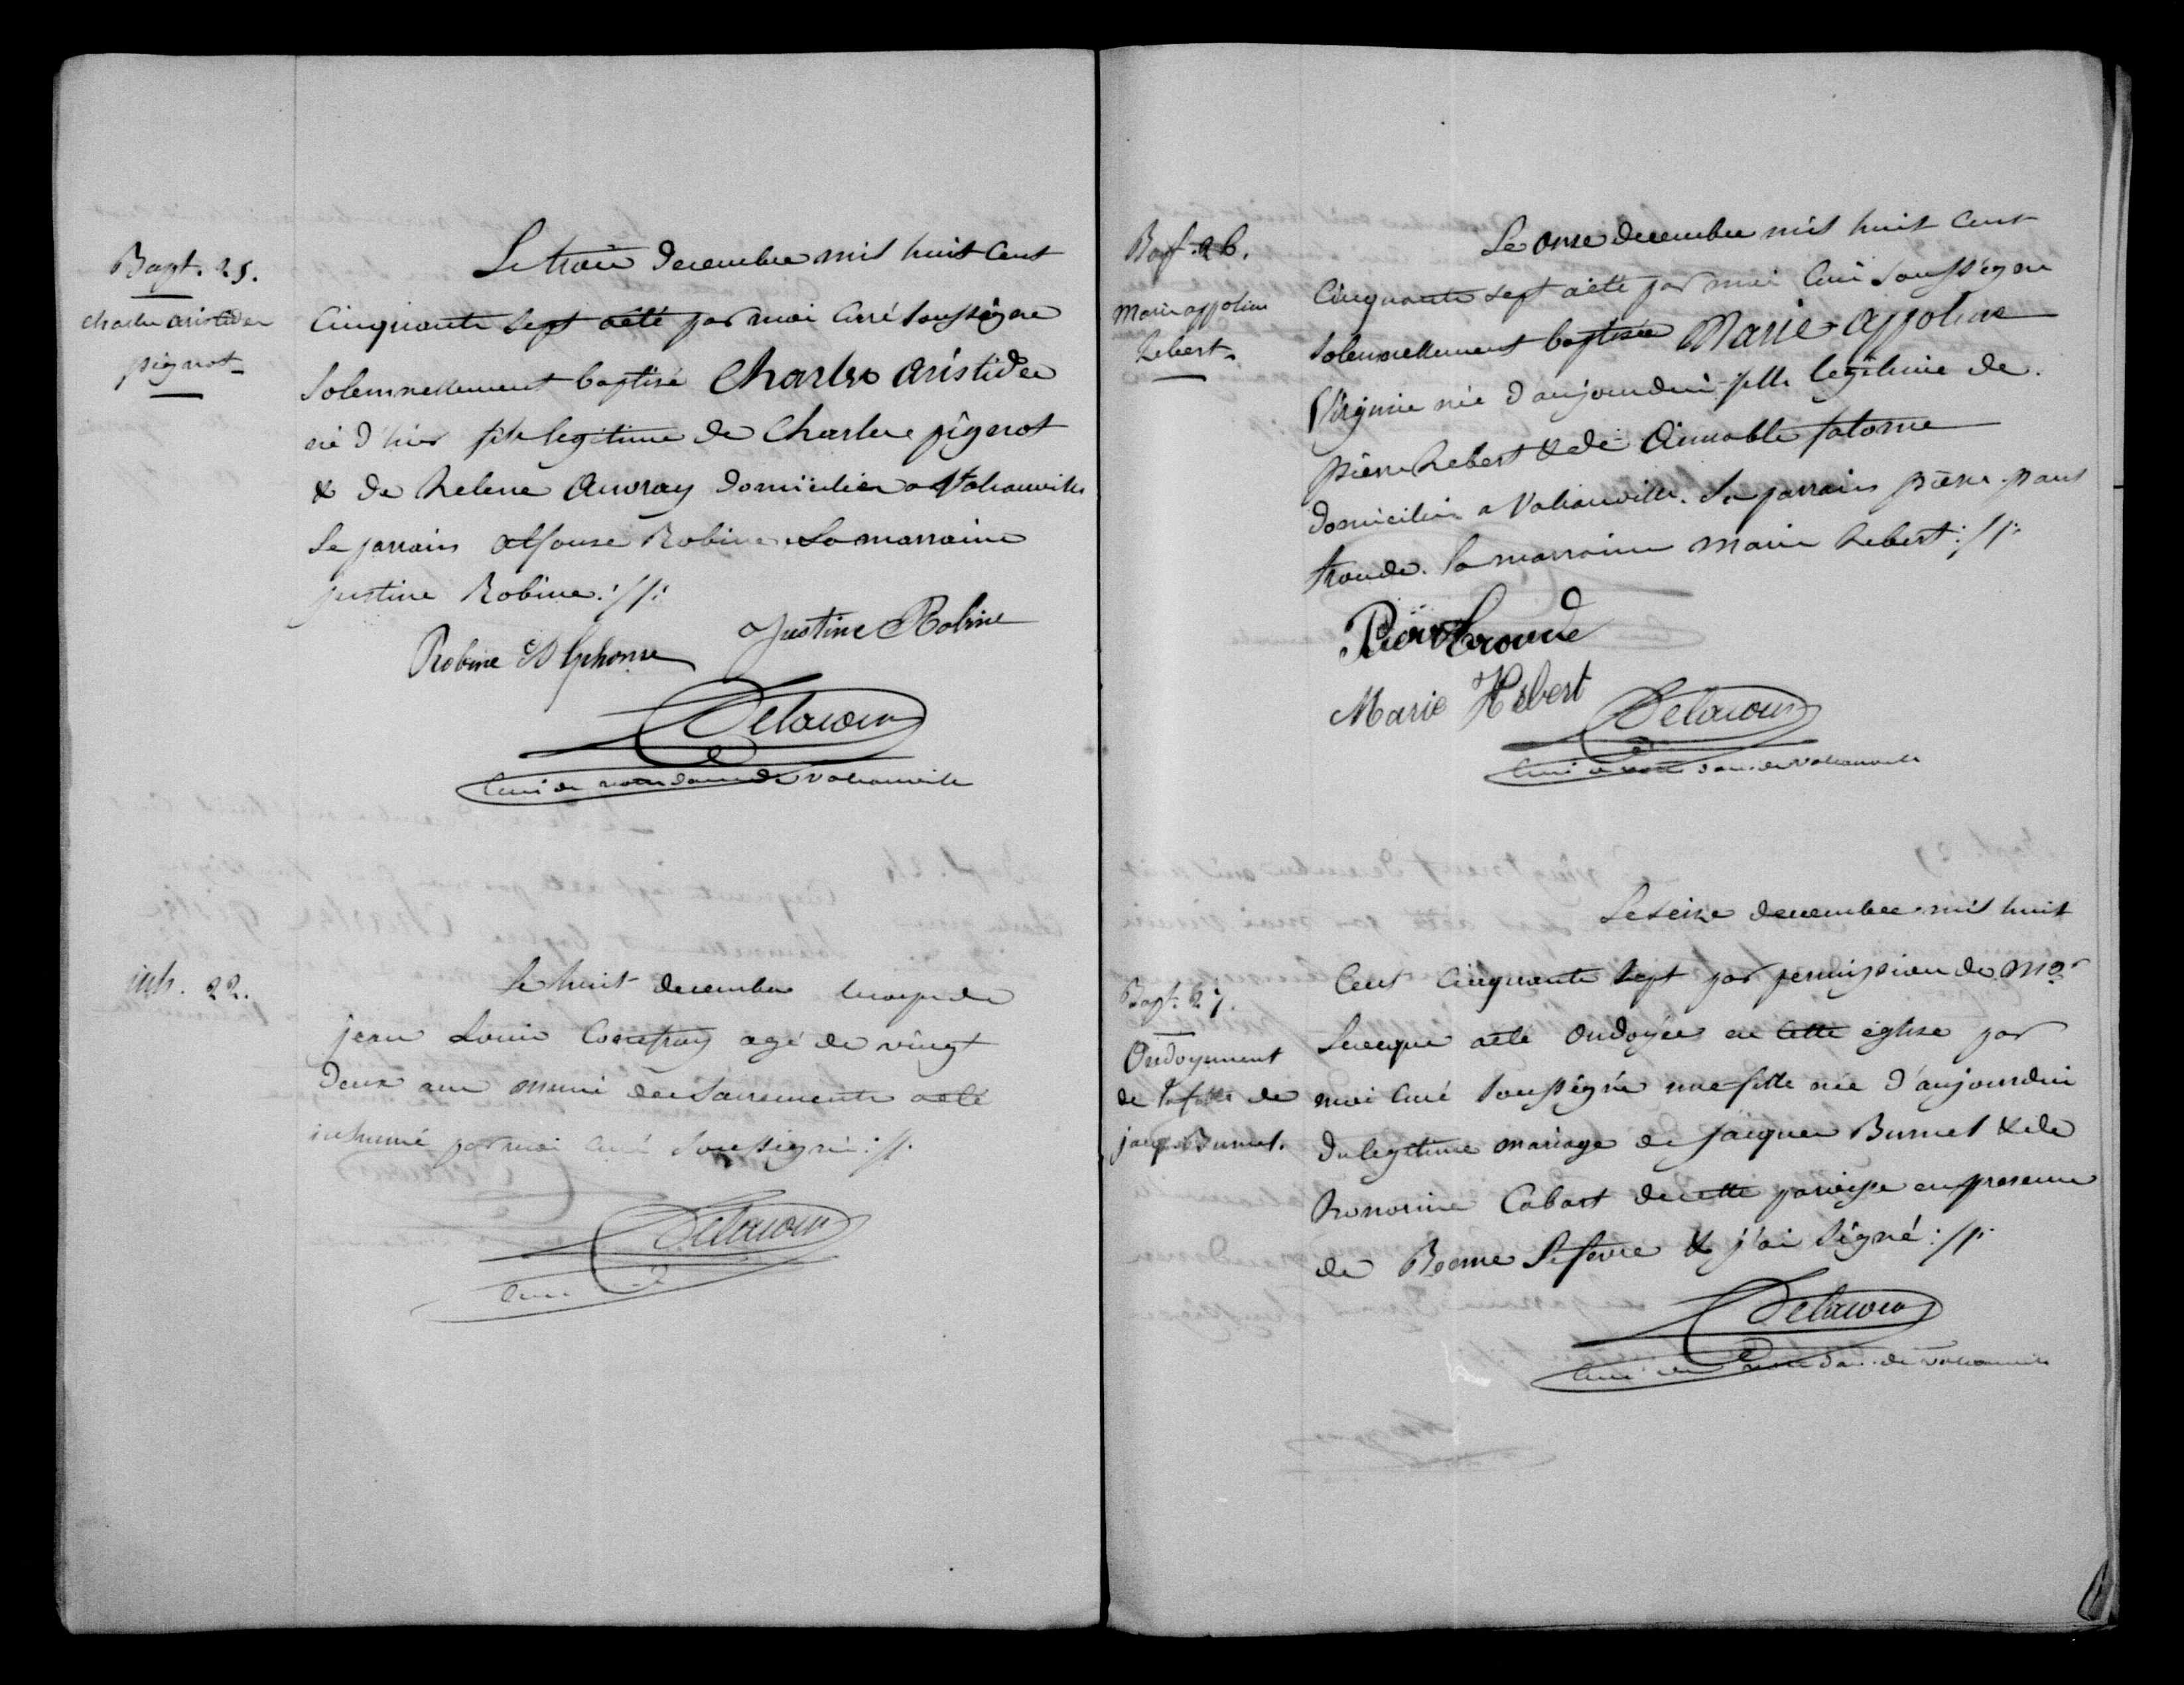 Bapt. 25.
Charles aristides
pignot
Le trois decembre mil huit cent
Cinquante sept aété par moi Curé soussigné
solemnellement baptisé Charles Aristides
né d'hier fils legitime de Charles pignot
& de helene Auvray domiciliés a
Le parrain alfonse Robine La marraine
justine Robine ://:
Robine Alphonse Justine Robine
Delacour
Curé de notre dame de
inh. 22.
Le huit decembre le corps de
jean Louis agé de vingt
deux ans muni des Sacrements aété
inhumé par moi curé soussigné ://.
Delacour
Curé
Bapt. 26.
Marie appoline
hebert
Le onze decembre mil huit cent
Cinquante sept aété par moi Curé soussigné
solemnellement baptisée Marie appoline
Virginie née d'aujourdui fille legitime de
pierre hebert & de Aimable
domiciliés a Le parrain pierre paul
troude. la marraine marie hebert ://:
Pierre troude
Marie Hebert
Delacour
Curé de notre dame de
Bapt. 27.
Ondoyement
de la fille de
jacques Burnel.
Le seize decembre mil huit
Cent Cinquante sept par permission de Mgr
Leveque aété Ondoyée en cette église par
moi curé soussigné une fille née d'aujourdui
du legitime mariage de jacques Burnel & de
honorine Cabart de cette paroisse en presence
de Lefevre & j'ai signé ://:
Delacour
Curé de notre dame de